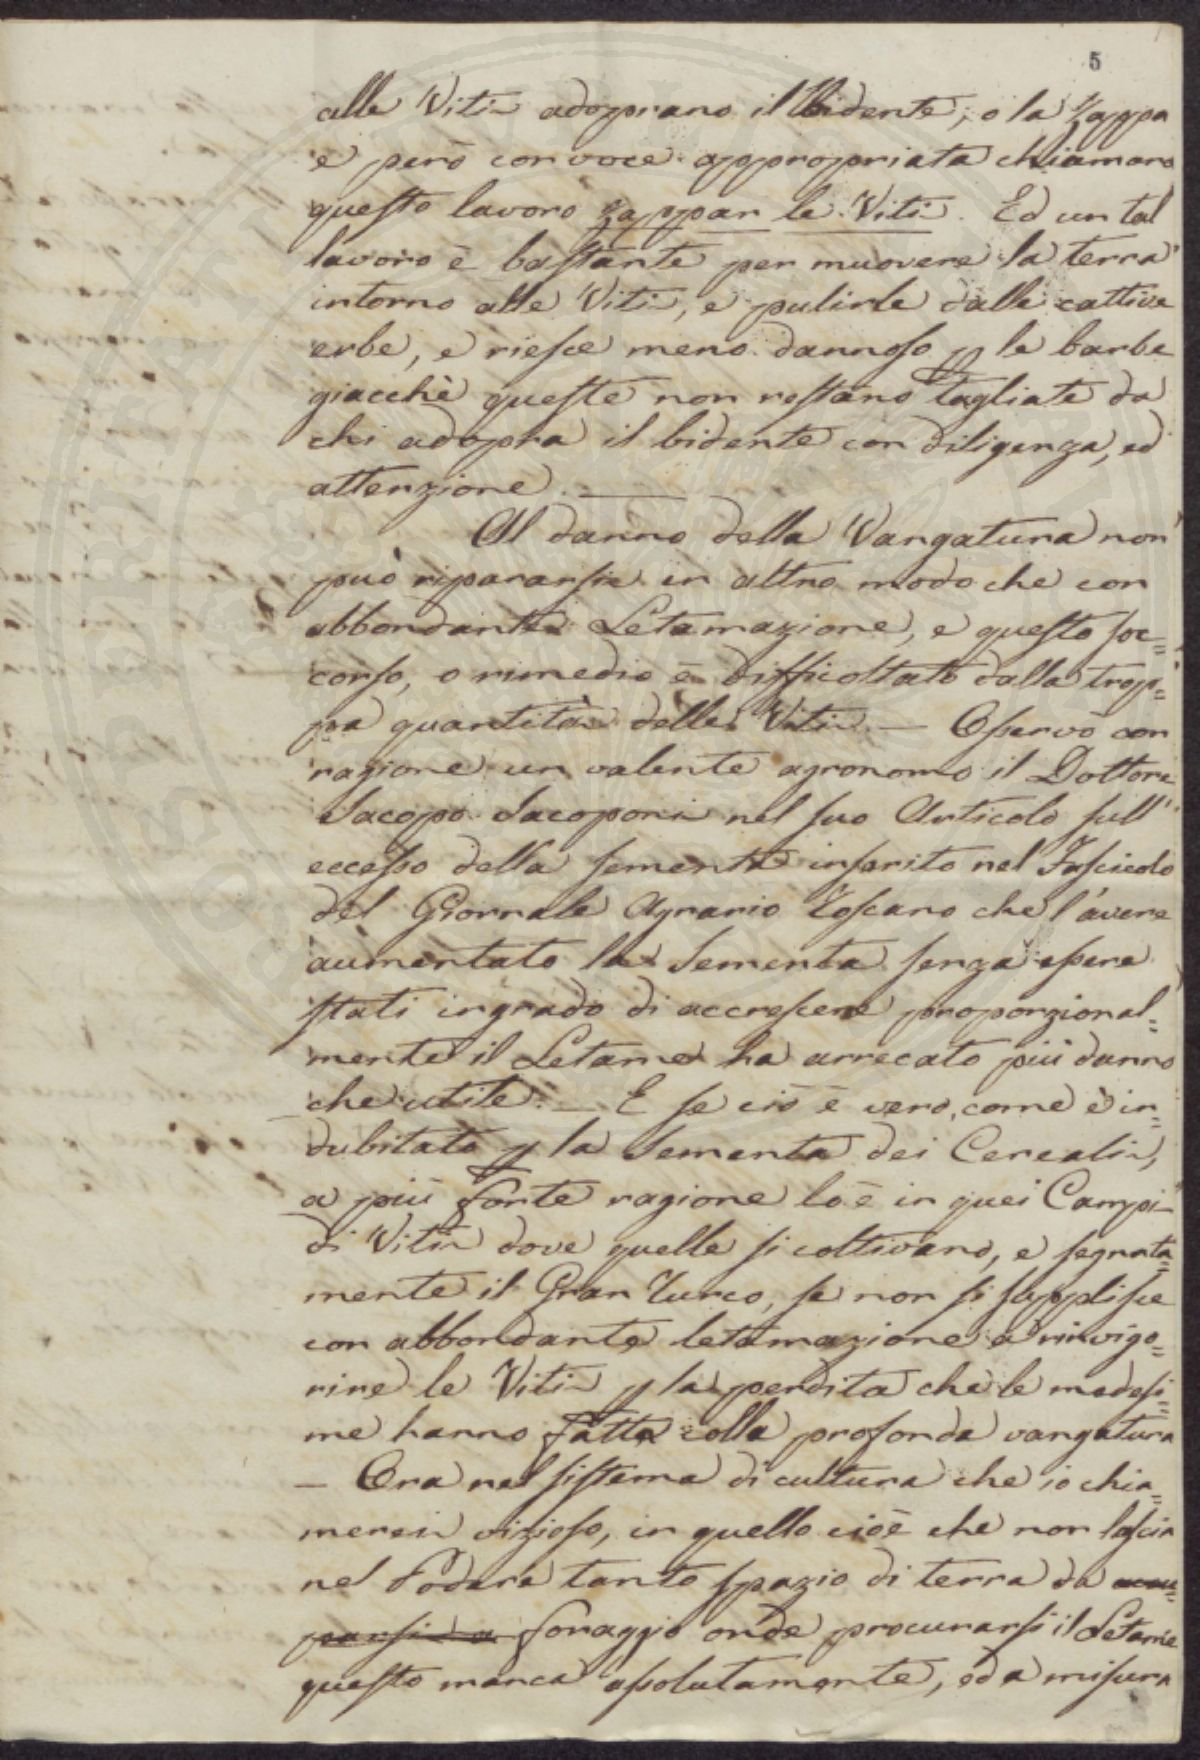 5
alle Viti adoprano il Bidente, o la Zappa
e però con voce appropriata chiamano
questo lavoro zappar le Viti. Ed un tal
lavoro è bastante per muovere la terra
intorno alle Viti, e pulirle dalle cattive
erbe, e riesce meno dannoso p le barbe
giacchè queste non restano tagliate da
chi adopra il bidente con diligenza, ed
attenzione. —
Al danno della Vangatura non
può ripararsi in altro modo che con
abbondante Letamazione, e questo soc=
corso, o rimedio è difficoltato dalla trop=
pa quantità delle Viti — Osservò con
ragione un valente agronomo il Dottore
Jacopo Jacoponi nel suo Articolo sull'
eccesso della sementa inserito nel Fascicolo
del Giornale Agrario Toscano che l'avere
aumentato la Sementa senza essere
stati in grado di accrescere proporzional=
mente il Letame ha arrecato più danno
che utile. — E se ciò è vero, come è in=
dubitato p la Sementa dei Cereali,
a più forte ragione lo è in quei Campi
di Viti dove quelle si coltivano, e segnata=
mente il Gran Turco, se non si supplisce
con abbondante letamazione a rinvigo=
rire le Viti p la perdita che le medesi=
me hanno fatta colla profonda vangatura
— Ora nel sistema di cultura che io chia=
merei vizioso, in quello cioè che non lascia
nel Podere tanto spazio di terra da
foraggio onde procurarsi il Letame
questo manca assolutamente, ed a misura